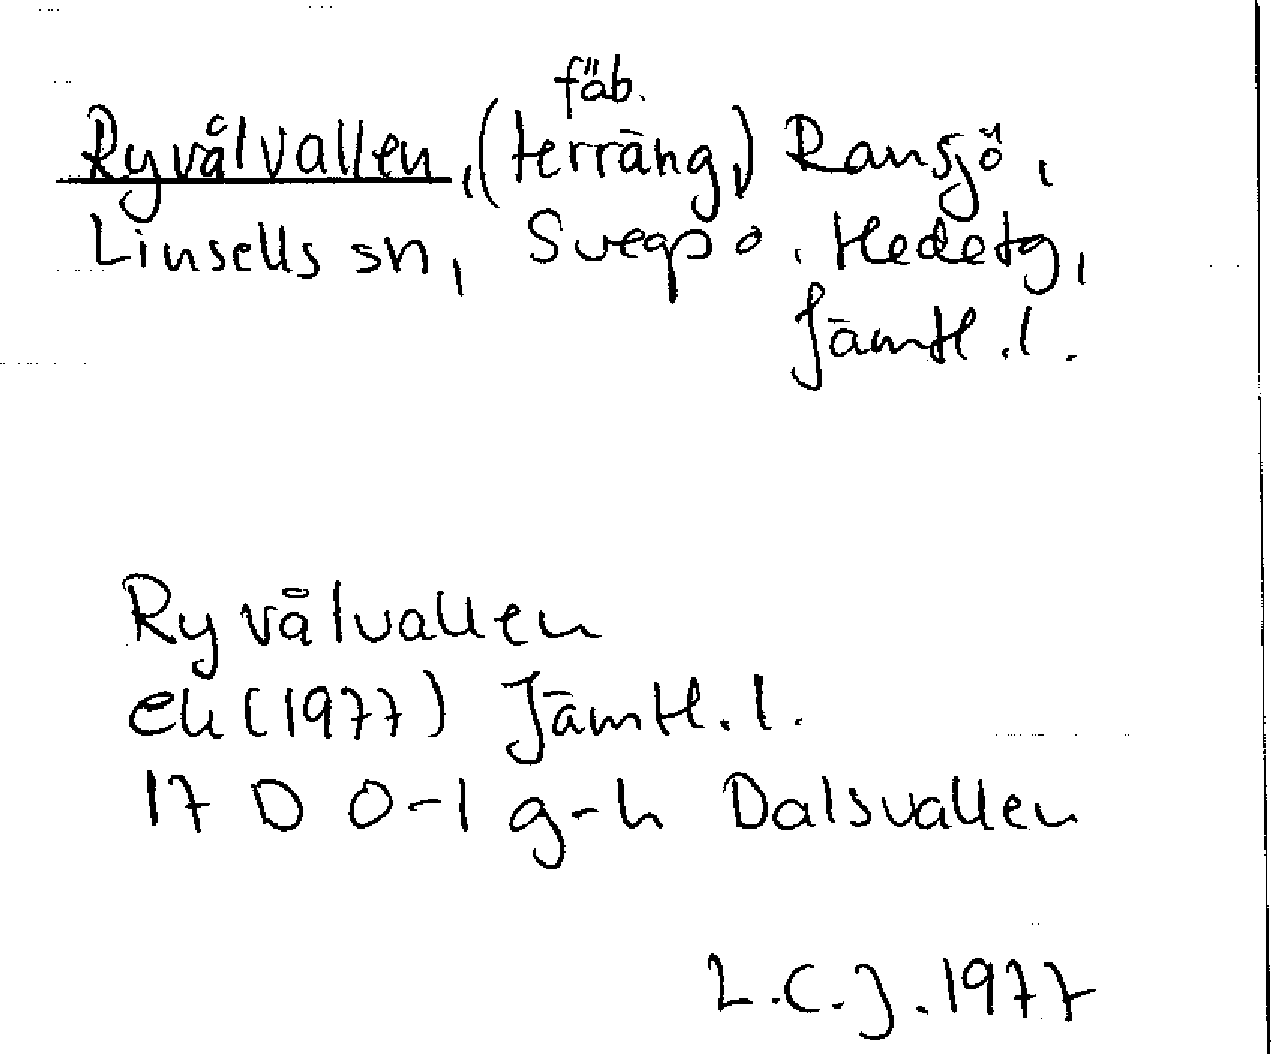 fäb.
Ryvålvallen, (terräng,) Ransjö,
Linsells sn, Svegs o. Hedetg,
Jämtl.l.
Ryvålvallen
ek (1977) Jämtl.l.
17 D 0-1 g-h Dalsvallen
L.C.J. 1977